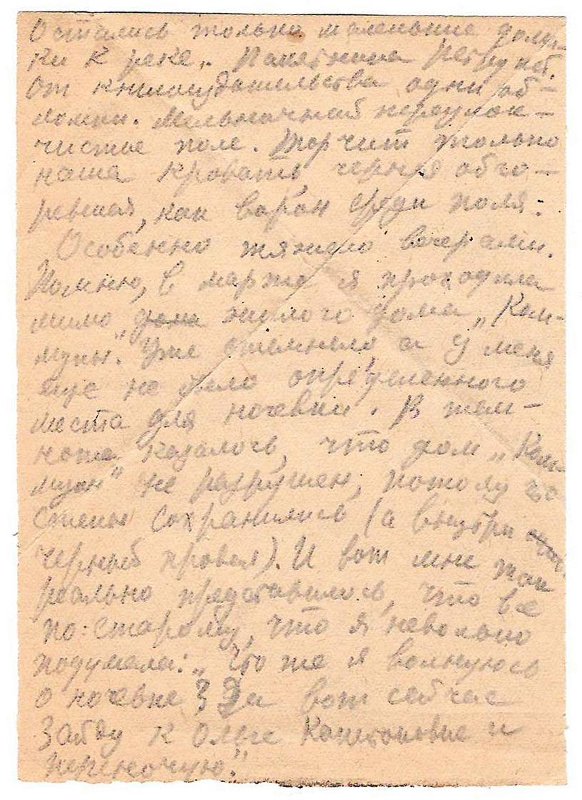 Остались только маленькие доми-
ки к реке. Памятника нет.
От книгоиздательства одни об-
ломки. Мельничный переулок –
чистое поле. Торчит только
наша кровать, черная обго-
ревшая, как ворон среди поля.
Особенно тяжело вечерами.
Помню, в марте я проходила
мимо жилого дома „Ком-
муны". Уже стемнело а у меня
еще не было определенного
места для ночевки. В тем-
ноте казалось, что дом „Ком-
мун" не разрушен, потому что
стены сохранились (а внутри
черный провал). И вот мне так
реально представилось, что все
по-старому, что я невольно
подумала: „Что же я волнуюсь
о ночевке? Да вот сейчас
зайду к Ольге и
переночую."